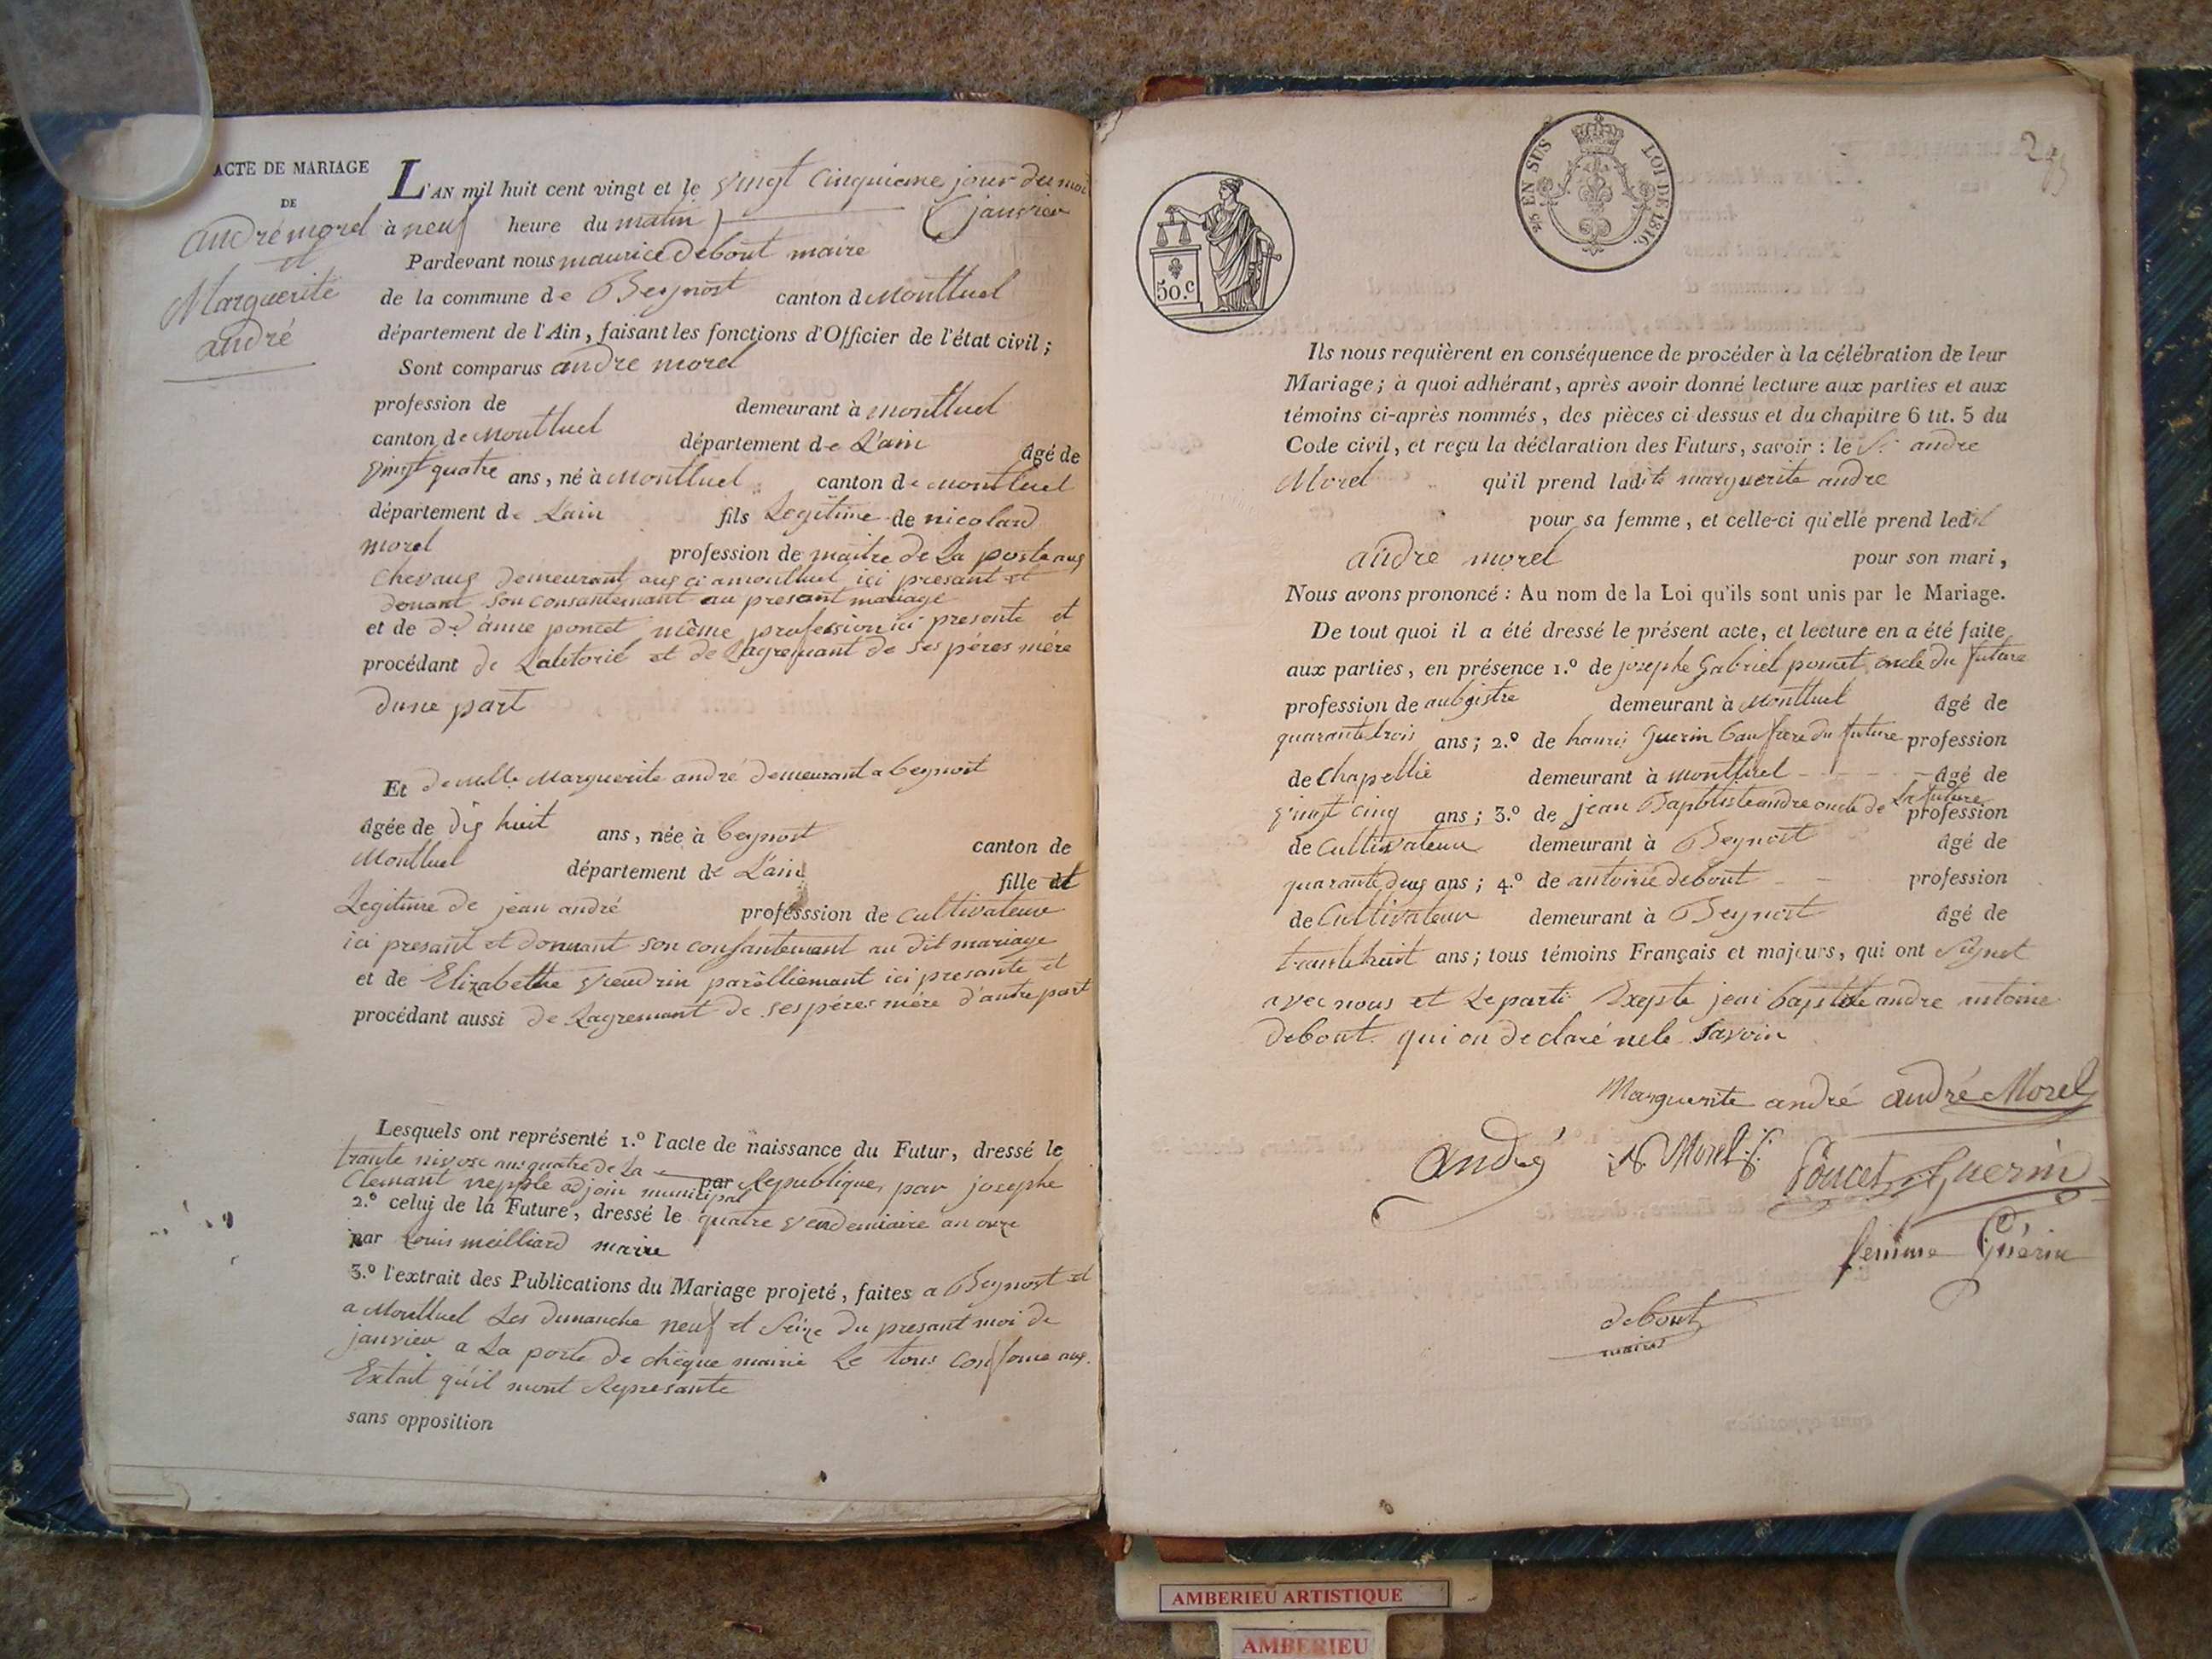 ACTE DE MARIAGE
DE
andré morel
et
Marguerite
andré
L'AN mil huit cent vingt et le vingt cinquieme jour du moi
à neuf heure du matin janvier
Pardevant nous maurice debout maire
de la commune de Beynost canton d Montluel
département de l'Ain, faisant les fonctions d'Officier de l'état civil;
Sont comparus andre morel
profession de demeurant à montluel
canton de Montluel département de L'ain âgé de
vingt quatre ans, né à Montluel canton de montluel
département de Lain fils Legitime de nicolard
morel profession de maitre de La poste aux
chevaux demeurant aussi a montluel ici presant et
donant son consantemant au presant mariage
et de de anne poncet même profession ici presente et
procédant de Lautorié et de Lagremant de ses péres mére
dune part
Et demelle Marguerite andré demeurant a beynost
âgée de dix huit ans, née à beynost canton de
Montluel département de L'ain fille et
Legitime de jean andré professsion de cultivateur
ici presant et donnant son consantemant au dit mariage
et de Elizabethe vendrin parëlliemant ici presante et
procédant aussi de Lagremant de ses péres mére d'autre part
Lesquels ont représenté 1.º l'acte de naissance du Futur, dressé le
trante nivose ans quatre de La par Republique, par josephe
Clemant nepple adjoin municipal
2.º celui de la Future, dressé le quatre vendemiaire an onze
par Louis meilliard maire
3.º l'extrait des Publications du Mariage projeté, faites a Beynost et
a Montluel Les dimanche neuf et seize du presant moi de
janvier a La porte de cheque mairie Le tous conforme aux
Extait qu'il mont Represante
sans opposition
50.c
EN SUS LOI DE 1816.
Ils nous requièrent en conséquence de procéder à la célébration de leur
Mariage; à quoi adhérant, après avoir donné lecture aux parties et aux
témoins ci-après nommés, des pièces ci-dessus et du chapitre 6 tit. 5 du
Code civil, et reçu la déclaration des Futurs, savoir: le Sr andre
Morel qu'il prend ladite marguerite andre
pour sa femme, et celle-ci qu'elle prend ledit
andre morel pour son mari,
Nous avons prononcé: Au nom de la Loi qu'ils sont unis par le Mariage.
De tout quoi il a été dressé le présent acte, et lecture en a été faite
aux parties, en présence 1.º de josephe Gabriel poncet oncle du future
profession de aubgistre demeurant à Montluel âgé de
quarante trois ans; 2.º de hanris Guerin baufrere du future profession
de Chapellié demeurant à montluel âgé de
vingt cinq ans; 3.º de jean Baptiste andre oncle de La future profession
de Cultivateur demeurant à Beynost âgé de
quarante deux ans; 4.º de antoine debout profession
de Cultivateur demeurant à Beynost âgé de
trante huit ans; tous témoins Français et majeurs, qui ont signet
avec nous et Le parti Exepte jean baptiste andre antoine
debout qui on declaré nele savoir
Marguerite andré andré Morel
André N. Morel Poncet Guerin
femme Guérin
debout
maire
AMBERIEU ARTISTIQUE
AMBERIEU